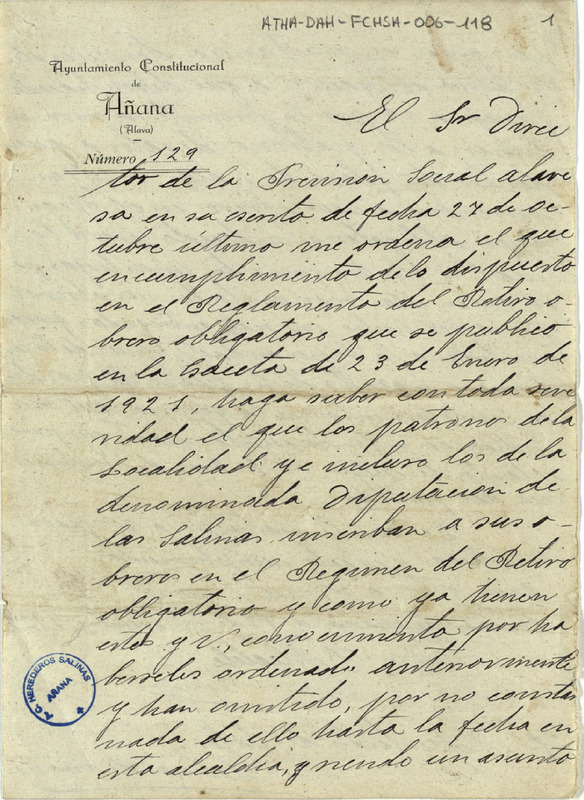 ATHA-DAH-FCHSA-006-118
1
Ayuntamiento Constitucional
de
Añana
(Alava)
Número 129
El Sr Direc
tor de la Prevision Social alave
sa en su escrito de fecha 27 de oc-
tubre último me ordena el que
en cumplimiento de lo dispuesto
en el Reglamento del Retiro o-
brero obligatorio que se publicó
en la Gaceta de 23 de Enero de
1921, haga saber con toda seve
ridad el que los patronos de la
Localidad y e incluso los de la
denominada Diputacion de
las Salinas inscriban a sus o-
breros en el Regimen del Retiro
obligatorio y como ya tienen
estos y V, conocimiento por ha
berseles ordenado anteriormente
y han omitido, por no constar
nada de ello hasta la fecha en
esta alcaldia, y siendo un asunto
A.C. HEREDEROS SALINAS
AÑANA